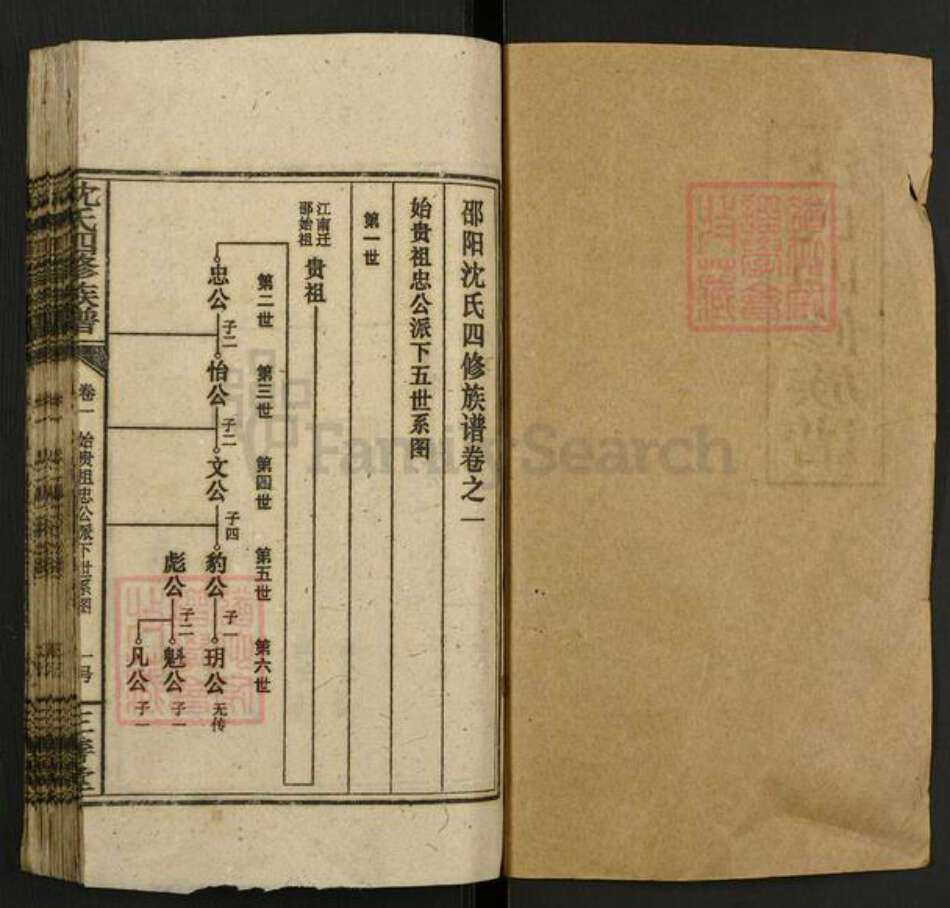 邵阳沈氏四修族谱卷之一
始贵祖忠公派下五世系图
第一世
江南迁
邵始祖
贵祖
第二世
第三世
第四世
第五世
第六世
忠公
子二
怡公
子二
文公
子四
豹公
子一
玥公
无传
彪公
子二
魁公
子一
凡公
子一
沈氏四修族谱
卷一
始贵祖忠公派下世系图
一号
三善堂
FamilySearch